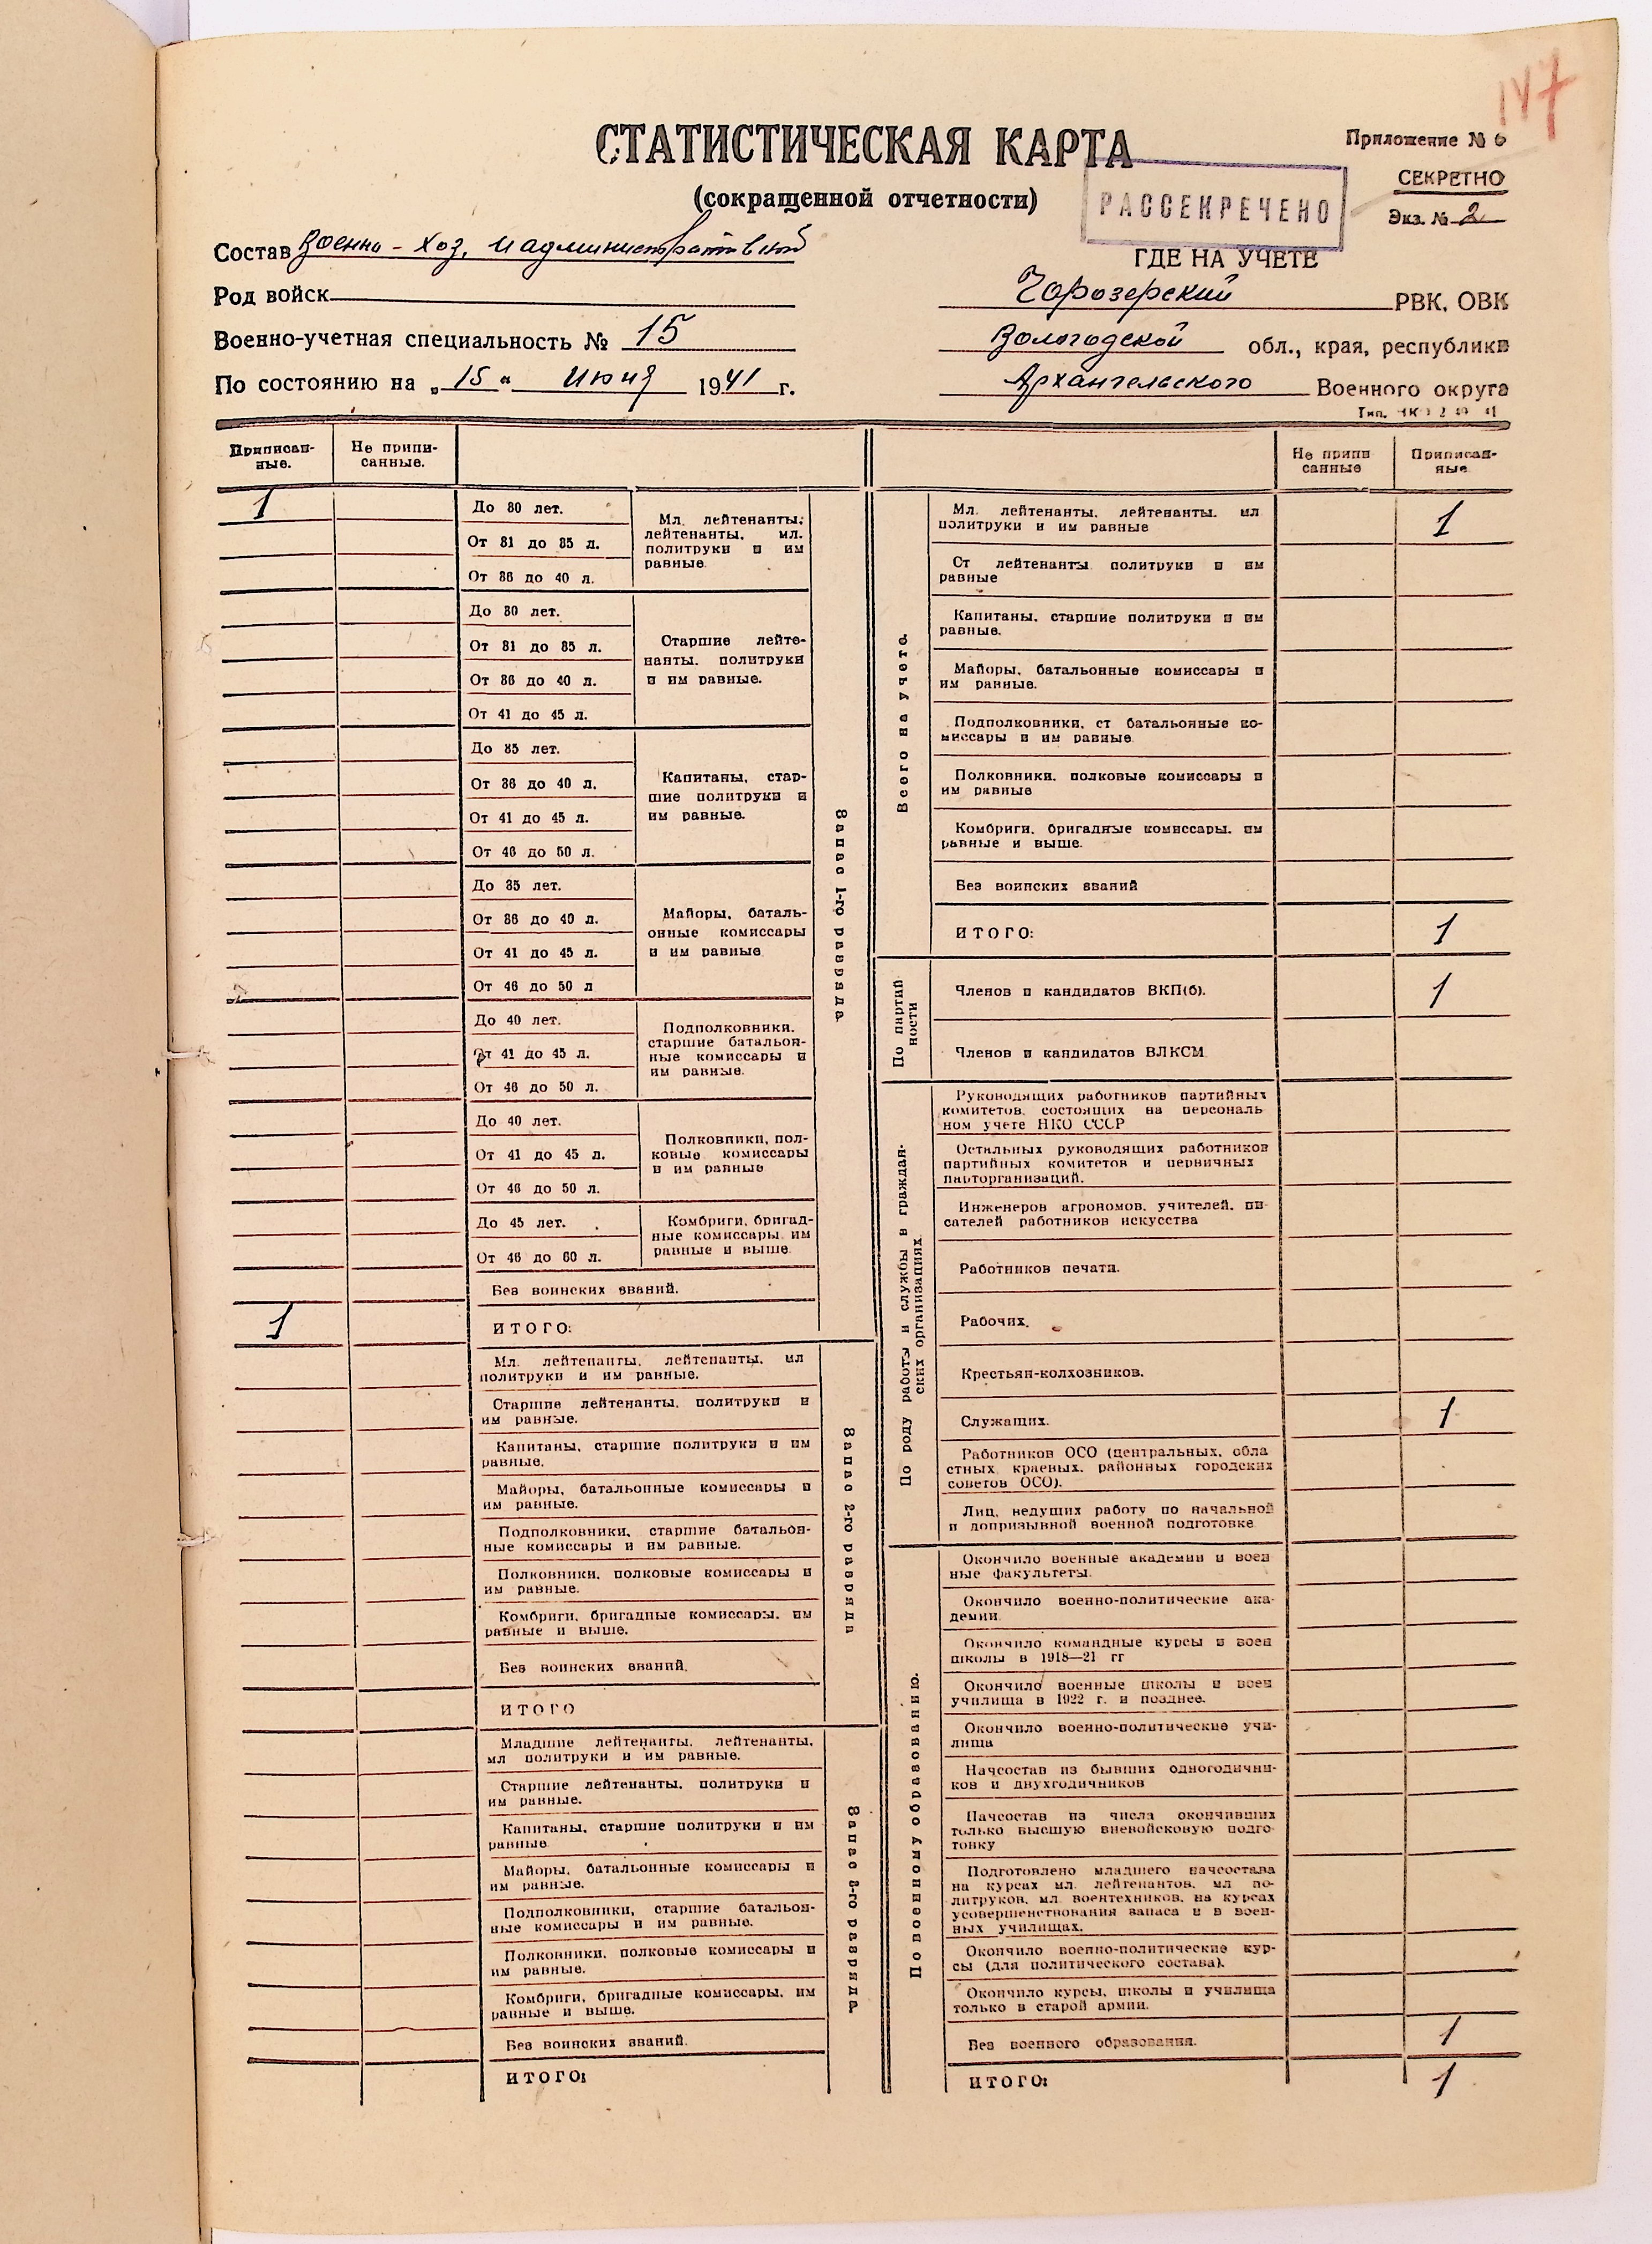 147
СТАТИСТИЧЕСКАЯ КАРТА
(сокращенной отчетности)
Приложение № 6
СЕКРЕТНО
Экз. № 2
РАССЕКРЕЧЕНО
Состав Военно-хоз. и административной
Род войск
Военно-учетная специальность № 15
По состоянию на „15" Июня 1941 г.
ГДЕ НА УЧЕТЕ
Чарозерский РВК, ОВК
Вологодской обл., края, республики
Архангельского Военного округа
Приписан-
ные.
Не припи-
санные.
1
До 30 лет.
От 31 до 35 л.
От 36 до 40 л.
Мл. лейтенанты,
лейтенанты, мл.
политруки и им
равные
До 30 лет.
От 31 до 35 л.
От 36 до 40 л.
От 41 до 45 л.
Старшие лейте-
нанты, политруки
и им равные.
До 35 лет.
От 36 до 40 л.
От 41 до 45 л.
От 46 до 50 л.
Капитаны, стар-
шие политруки и
им равные.
До 35 лет.
От 36 до 40 л.
От 41 до 45 л.
От 46 до 50 л
Майоры, баталь-
онные комиссары
и им равные
До 40 лет.
От 41 до 45 л.
От 46 до 50 л.
Подполковники,
старшие батальон-
ные комиссары и
им равные.
До 40 лет.
От 41 до 45 л.
От 46 до 50 л.
Полковники, пол-
ковые комиссары
и им равные
До 45 лет.
От 46 до 60 л.
Комбриги, бригад-
ные комиссары, им
равные и выше
Без воинских званий.
1
ИТОГО:
Запас 1-го разряда
Мл. лейтенанты, лейтенанты, мл
политруки и им равные.
Старшие лейтенанты, политруки и
им равные.
Капитаны, старшие политруки и им
равные.
Майоры, батальонные комиссары и
им равные.
Подполковники, старшие батальон-
ные комиссары и им равные.
Полковники, полковые комиссары и
им равные.
Комбриги, бригадные комиссары, им
равные и выше.
Без воинских званий.
ИТОГО
Запас 2-го разряда
Младшие лейтенанты, лейтенанты,
мл политруки и им равные.
Старшие лейтенанты, политруки и
им равные.
Капитаны, старшие политруки и им
равные
Майоры, батальонные комиссары и
им равные.
Подполковники, старшие батальон-
ные комиссары и им равные.
Полковники, полковые комиссары и
им равные.
Комбриги, бригадные комиссары, им
равные и выше.
Без воинских званий.
ИТОГО:
Запас 3-го разряда.
Не припи
санные
Приписан-
ные
Всего на учете.
Мл. лейтенанты, лейтенанты, мл
политруки и им равные
1
Ст лейтенанты политруки и им
равные
Капитаны, старшие политруки и им
равные.
Майоры, батальонные комиссары и
им равные.
Подполковники, ст батальонные ко-
миссары и им равные
Полковники, полковые комиссары и
им равные
Комбриги, бригадные комиссары, им
равные и выше.
Без воинских званий
ИТОГО:
1
По партий
ности
Членов и кандидатов ВКП(б).
1
Членов и кандидатов ВЛКСМ
По роду работы и службы в граждан-
ских организациях
Руководящих работников партийных
комитетов, состоящих на персональ
ном учете НКО СССР
Остальных руководящих работников
партийных комитетов и первичных
парторганизаций.
Инженеров агрономов, учителей, пи-
сателей работников искусства
Работников печати.
Рабочих.
Крестьян-колхозников.
Служащих.
1
Работников ОСО (центральных, обла
стных краевых, районных городских
советов ОСО).
Лиц, ведущих работу по начальной
и допризывной военной подготовке
По военному образованию.
Окончило военные академии и воен
ные факультеты.
Окончило военно-политические ака-
демии
Окончило командные курсы и воен
школы в 1918—21 гг
Окончило военные школы и воен
училища в 1922 г. и позднее.
Окончило военно-политические учи-
лища
Начсостав из бывших одногодични-
ков и двухгодичников
Начсостав из числа окончивших
только высшую вневойсковую подго-
товку
Подготовлено младшего начсостава
на курсах мл. лейтенантов, мл по-
литруков, мл. воентехников, на курсах
усовершенствования запаса и в воен-
ных училищах.
Окончило военно-политические кур-
сы (для политического состава).
Окончило курсы, школы и училища
только в старой армии.
Без военного образования.
1
ИТОГО:
1